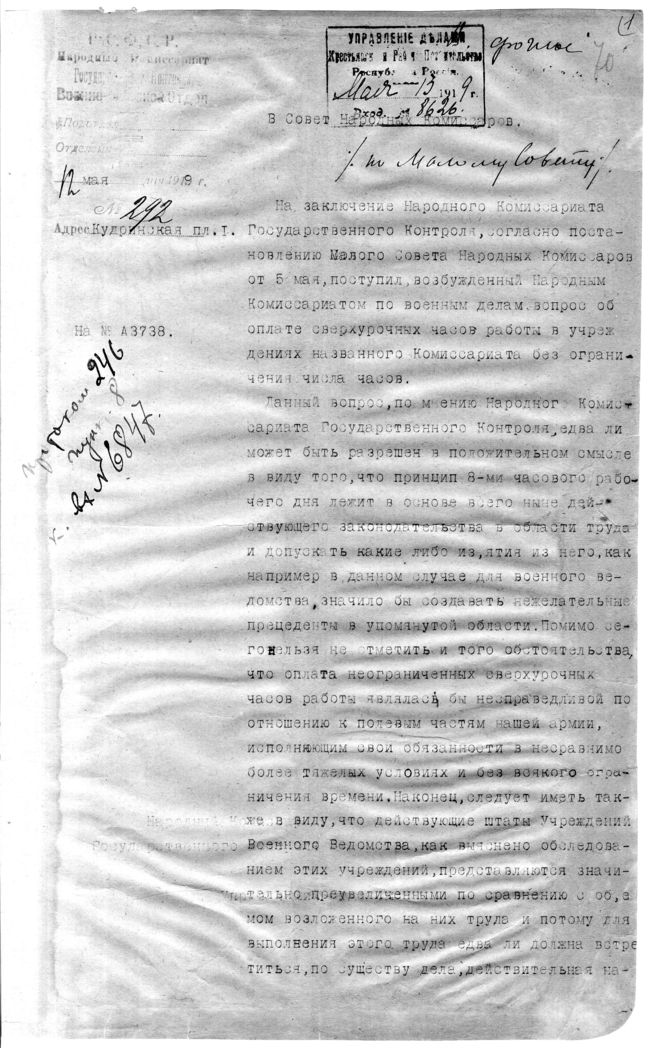 Р.С.Ф.С.Р.
Народный Комиссариат
Государственного Контроля
Военно-Морской Отдел
Отделение
12 мая дня 1919 г.
№ 292
Адрес Кудринская пл. 1.
На № А3738.
протокол 246
пункт 8
к. вх № 6847.
УПРАВЛЕНІЕ ДѢЛАМИ
Крестьянск. и Рабоч. Правительства
Республ. Россія.
Мая 13 1919 г.
Вход. № 8626.
срочное
70
(1
В Совет Народных Комиссаров.
/по Малому Совету/.
На заключение Народного Комиссариата
Государственного Контроля,согласно поста-
новлению Малого Совета Народных Комиссаров
от 5 мая,поступил,возбужденный Народным
Комиссариатом по военным делам вопрос об
оплате сверхурочных часов работы в учреж
дениях названного Комиссариата без ограни-
чения числа часов.
Данный вопрос,по мнению Народного Комис-
сариата Государственного Контроля,едва ли
может быть разрешен в положительном смысле
в виду того,что принцип 8-ми часового рабо-
чего дня лежит в основе всего ныне дей-
ствующего законодательства в области труда
и допускать какие либо из,ятия из него,как
например в данном случае для военного ве-
домства,значило бы создавать нежелательные
прецеденты в упомянутой области.Помимо се-
го нельзя не отметить и того обстоятельства,
что оплата неограниченных сверхурочных
часов работы являлась бы несправедливой по
отношению к полевым частям нашей армии,
исполняющим свои обязанности в несравнимо
более тяжелых условиях и без всякого огра-
ничения времени.Наконец,следует иметь так-
же в виду,что действующие штаты Учреждений
Военного Ведомства,как выяснено обследова-
нием этих учреждений,представляются значи-
тельно преувеличенными по сравнению с об,е
мом возложенного на них труда и потому для
выполнения этого труда едва ли должна встре
титься,по существу дела,действительная на-